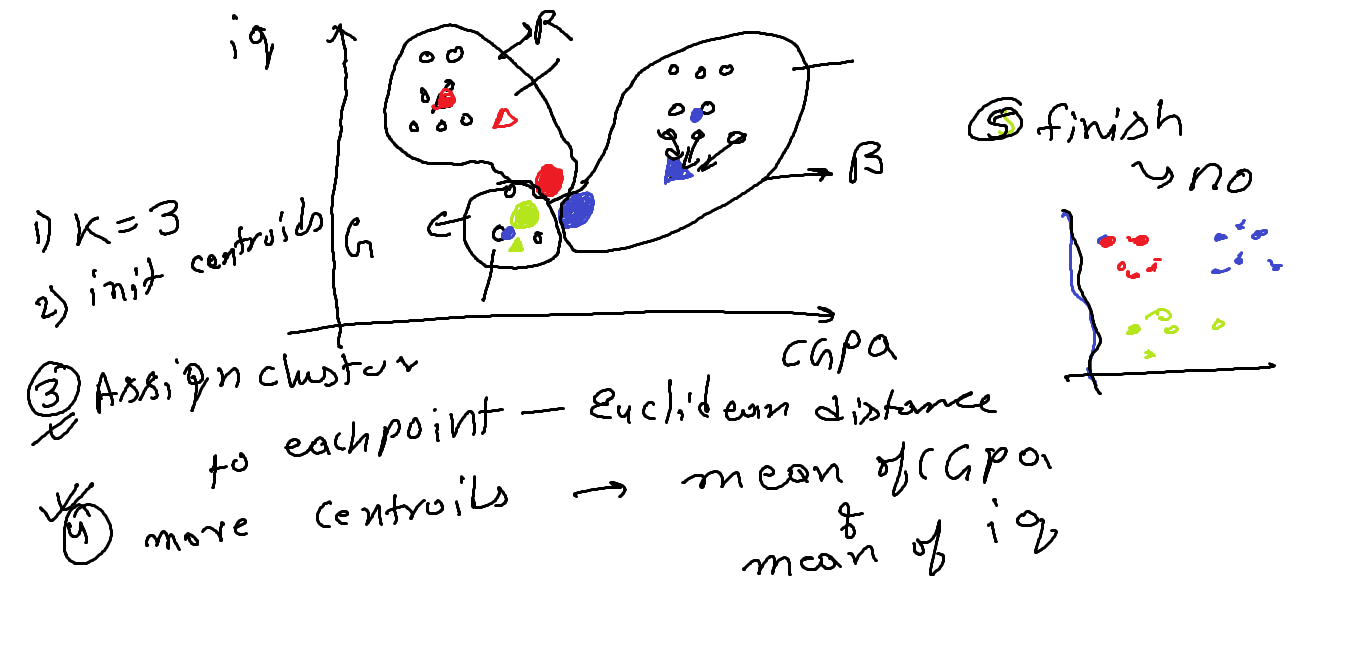 iq
R
B
G
CGPA
1) K = 3
2) init centroids
3 Assign cluster
to each point — Euclidean distance
4 more centroids → mean of CGPA
&
mean of iq
5 finish
↳ no